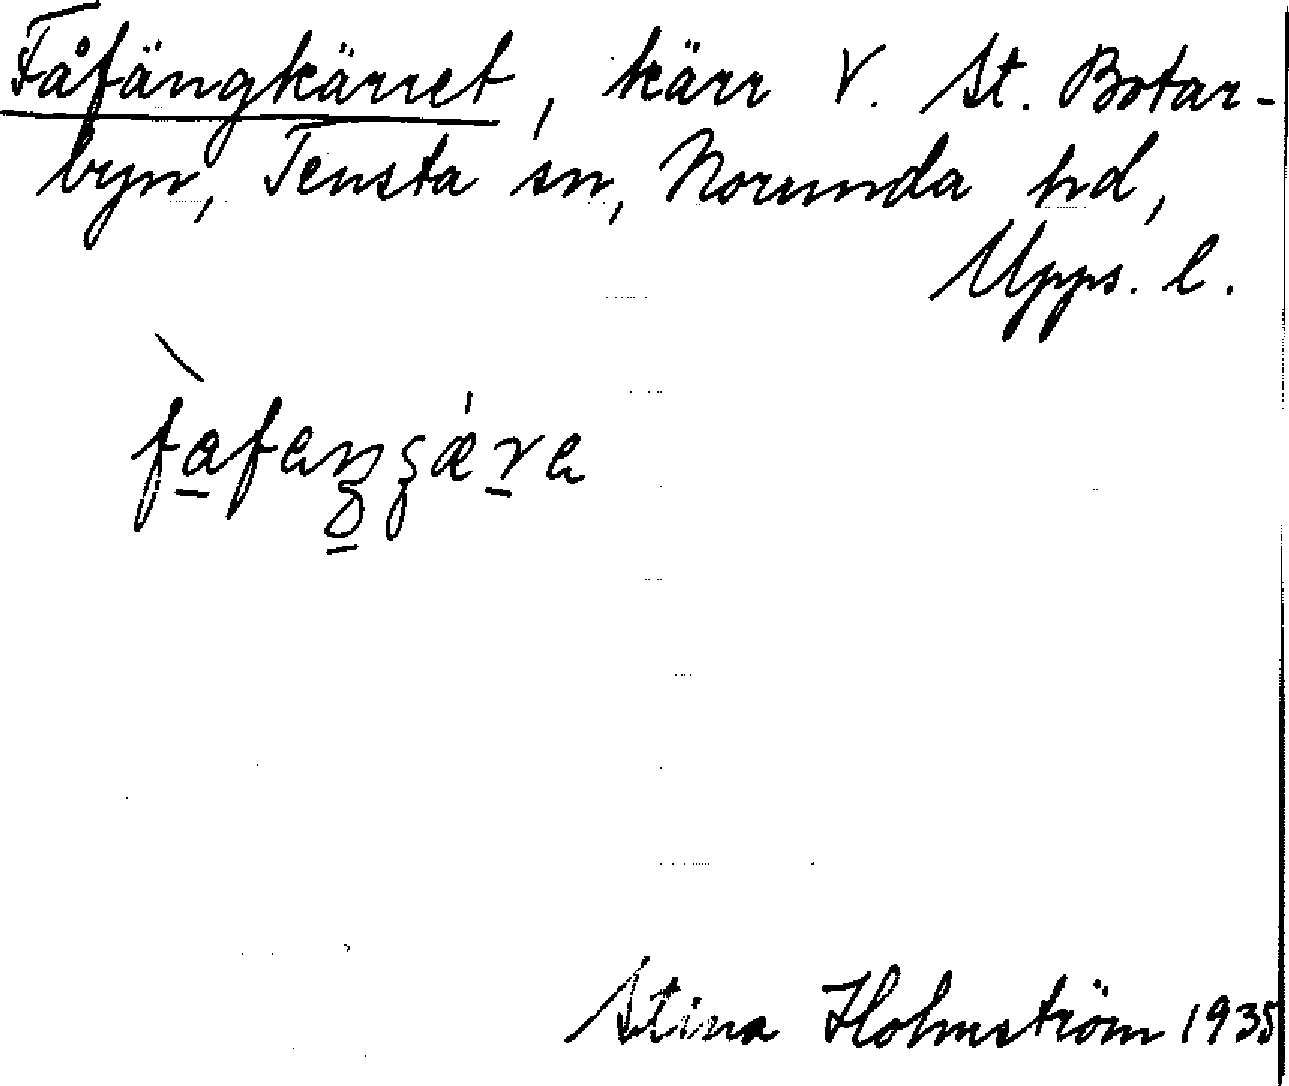 Fåfängkärret, kärr V. St. Botar-
byn, Tensta sn, Norunda hd,
Upps. l.
Stina Holmström 1935